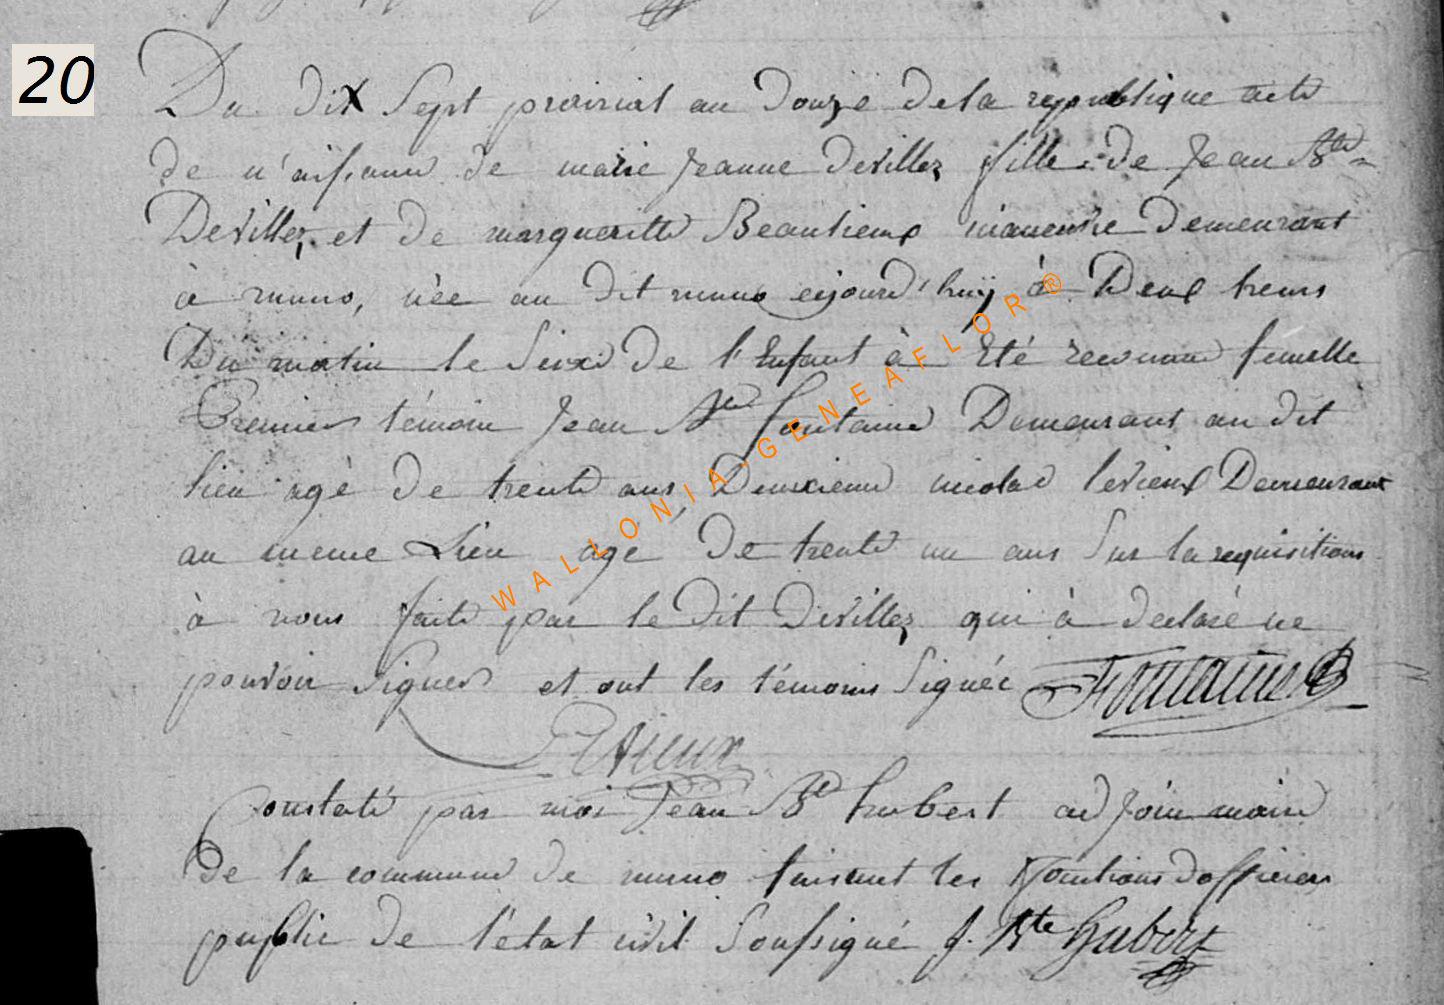 20
Du dix sept prairial an douze de la republique acte
de n'aissance de marie Jeanne Devillez fille de Jean Bte
Devillez et de margueritte Beautieux maneuvre Demeurant
à muno, née au dit muno aujourd'huÿ à Deux heurs
Du matin le Sexe de l'Enfant à Eté reconnu femelle
Premier témoin Jean Bte fontaine Demeurant au dit
lieu agé de trente ans Deuxieme nicolas levieux Demeurant
au meme Lieu age de trente un ans Sur la requisitions
à nous faite par le dit Devillez qui à declaré ne
pouvoir Signer et ont les témoins Signée Fontaine
Levieux
Constaté par moi Jean Bte hubert adjoin maire
De la commune de muno faisant les fonctions d'officier
public de l'état civil Soussigné J. Bte Hubert
WALLONIA-GENEAFLOR®